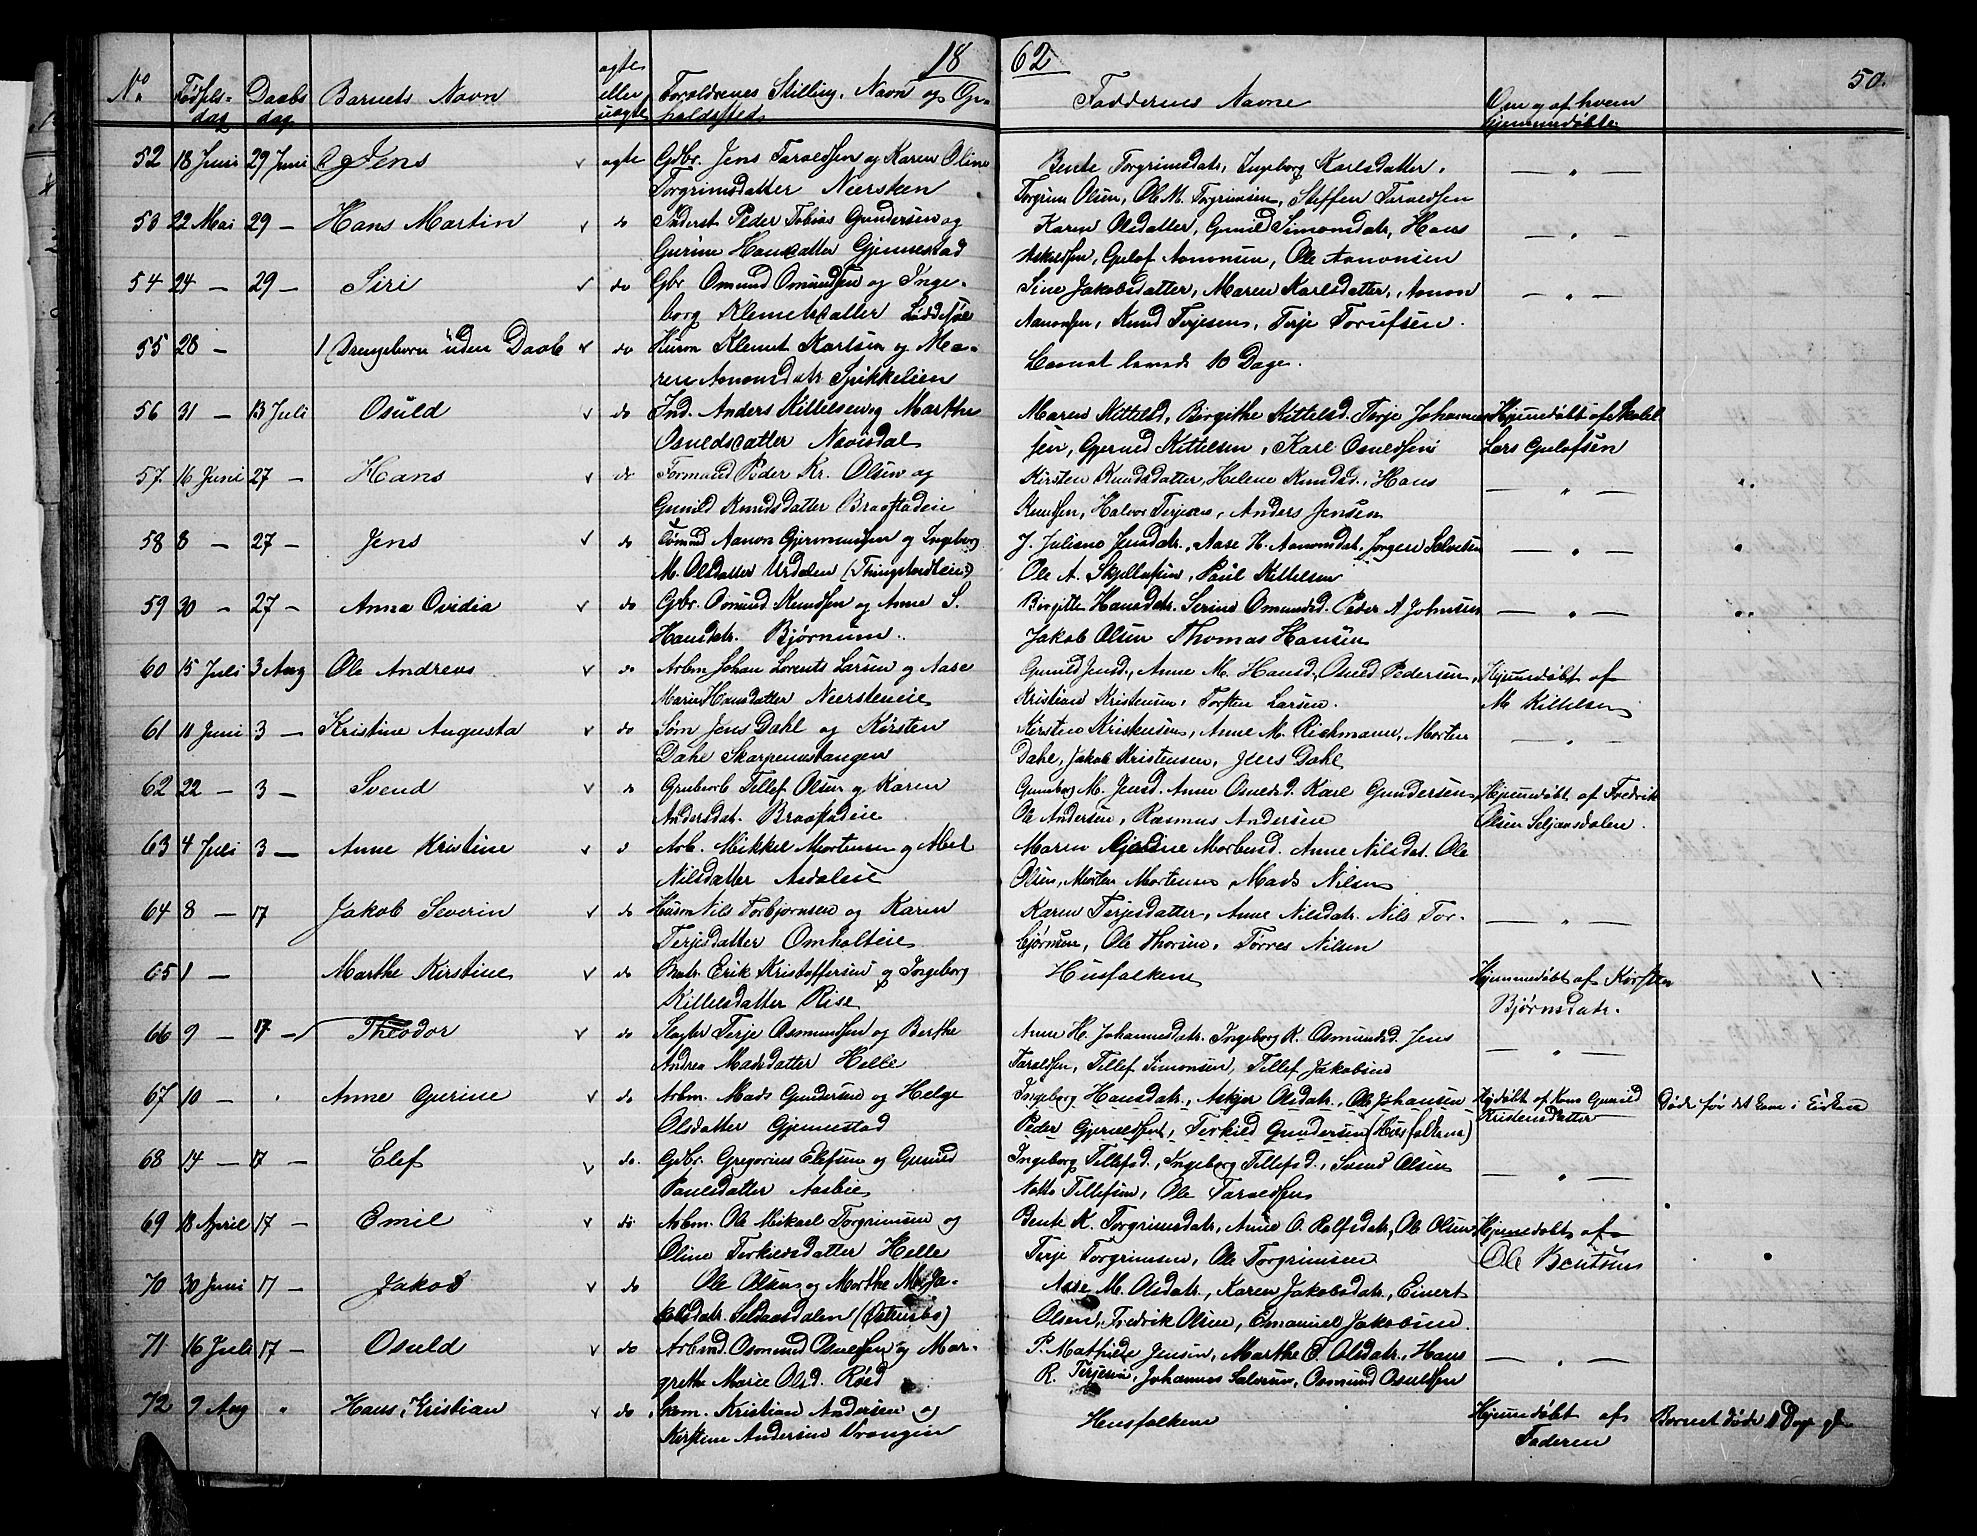 18 62
50.
No Fødsels- Daabs Barnets Navn ægte Forældrenes Stilling, Navn og Op- Faddernes Navne Om og af hvem
dag dag eller uægte holdssted hjemmedøbt
52 18 Juni 29 Juni Jens ægte Gbr. Jens Taraldsen og Karen Oline Bente Torgrimsdatr, Ingeborg Karlsdatter,
Torgrimsdatter Nærsken Torgrim Olsen, Ole M. Torgrimsen, Steffen Taraldsen
53 22 Mai 29 — Hans Martin do Inderst Peder Tobias Gundersen og Karen Olsdatter, Gunild Simonsdatr, Hans
Gurine Hansdatter Gjennestad Askildsen, Gulof Aanonsen, Ole Aanonsen
54 24 — 29 — Siri do Gbr Omund Omundsen og Inge- Sine Jakobsdatter, Maren Karlsdatter, Aanon
borg Klemetsdatter Løddesøl Aanonsen, Knud Terjesen, Terje Torufsen.
55 28 — 1 Drengebarn uden Daab do Husm Klemet Karlsen og Ma- Barnet levede 10 Dage.
ren Aanonsdatr Spikkelien
56 31 — 13 Juli Osuld do Ind. Anders Kittelsen og Marthe Maren Kittelsd, Birgithe Kittelsd. Terje Johannes- Hjemmedøbt af Skolel
Osuldsdatter Navisdal sen, Gjerund Kittelsen, Karl Osuldsen Lars Gulofsen
57 16 Juni 27 — Hans do Formand Peder Kr. Olsen og Kirsten Knudsdatter, Helene Knudsd., Hans
Gunild Knudsdatter Braastadeie Knudsen, Halvor Terjesen, Anders Jensen
58 8 — 27 — Jens do Tømmd Aanon Gjermundsen og Ingeborg J. Juliane Jensdatr., Aase H. Aanonsdat. Jørgen Salvesen
M. Olsdatter Urdalen (Thingstveitlien) Ole A. Skjellufsen, Paul Kittelsen
59 30 — 27 — Anna Ovidia do Gbr. Osmund Knudsen og Anne S. Birgitte Hansdatr. Serine Omundsd. Peder A Johnsen
Hansdatr. Bjørnum. Jakob Olsen Thomas Hansen
60 15 Juli 3 Aug Ole Andreas do Arbm Johan Lorents Larsen og Aase Gunild Jensd., Anne M. Hansd., Osuld Pedersen, Hjemmedøbt af
Marie Hansdatter Nærsteneie Kristian Kristensen, Torsten Larsen. M Kittelsen
61 11 Juni 3 — Kristine Augusta do Søm Jens Dahl og Kirsten Kirsten Kristensen, Anne M. Richmann, Morten
Dahl Skarpennestangen Dahl, Jakob Kristensen, Jens Dahl
62 22 — 3 — Svend do Grubearb Tellef Olsen og Karen Gunborg M. Jensd. Anne Osuldsd. Karl Gundersen, Hjemmedøbt af Fredrik
Andersdat. Braastadeie Ole Andersen, Rasmus Andersen Olsen Seljaasdalen.
63 4 Juli 3 — Anne Kristine d Arb. Mikkel Mortensen og Abel Maren Mortensd. Anne Nilsdat. Ole
Nilsdatter Asdaleie Olsen, Morten Mortensen Mads Nilsen
64 8 — 17 Jakob Severin do Husm Nils Torbjørnsen og Karen Karen Terjesdatter, Anne Nilsdatr. Nils Tor-
Terjesdatter Omholteie bjørnsen, Ole Thorsen, Tørres Nilsen
65 1 — Marthe Kirstine do Erik Kristoffersen og Ingeborg Husfolkene Hjemmedøbt af Kirsten
Kittelsdatter Rise Bjørnsdatr.
66 9 — 17 — Theodor do Slagter Terje Osmundsen og Berthe Anne H. Johannesdatr. Ingeborg K. Osmundsd. Jens
Andrea Madsdatter Helle Taraldsen, Tellef Simonsen, Tellef Jakobsen
67 10 — Anne Gurine do Arbm. Mads Gundersen og Helge Ingeborg Hansdatr., Askjer Olsdatr., Ole Johansen Hjdøbt af Kone Gunild Døde før det kom i Kirken
Olsdatter Gjennestad Peder Gjeruldsen, Terkild Gundersen (Husfolkene) Kristensdatter
68 14 — 17 — Elef do. Gbr. Gregorius Elefsen og Gunild Ingeborg Tellefsd., Ingeborg Tellefsd., Svend Olsen
Paulsdatter Aasbie Notto Tellefsen, Ole Taraldsen
69 18 April 17 — Emil do Arbm. Ole Mikael Torgrimsen og Bente K. Torgrimsdatr, Anne O. Rolfsdatr, Ole Olsen Hjemmedøbt af
Oline Terkildsdatter Helle Terje Torgrimsen, Ole Torgrimsen Ole Bentsen
70 30 Juni 17 — Jakob do Ole Olsen og Marthe M. Ja- Aase M. Olsdatr., Karen Jakobsdatr., Einert
kobsdatr. Seldaasdalen (Østerebø) Olsen, Fredrik Olsen, Emanuel Jakobsen.
71 16 Juli 17 — Osuld do Arbmd. Osmund Osuldsen og Mar- P. Mathilde Jensen, Marthe T. Olsdatr., Hans
grethe Marie Olsd. Røed R. Terjesen, Johannes Salvesen, Osmund Osuldsen
72 9 Aug Hans Kristian do Skom. Kristian Andersen og Husfolkene Hjemmedøbt af Barnet døde 11 Dage gl
Kirstine Andersen Vrangen Faderen